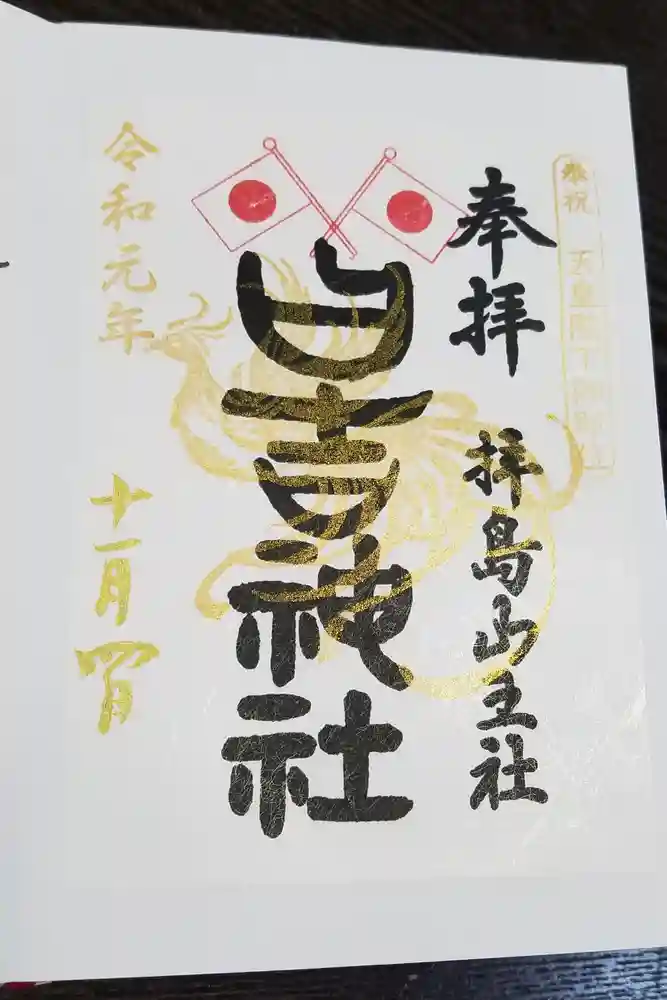 奉祝 天皇陛下
奉拝
拝島山王社
日吉神社
令和元年
十一月四日